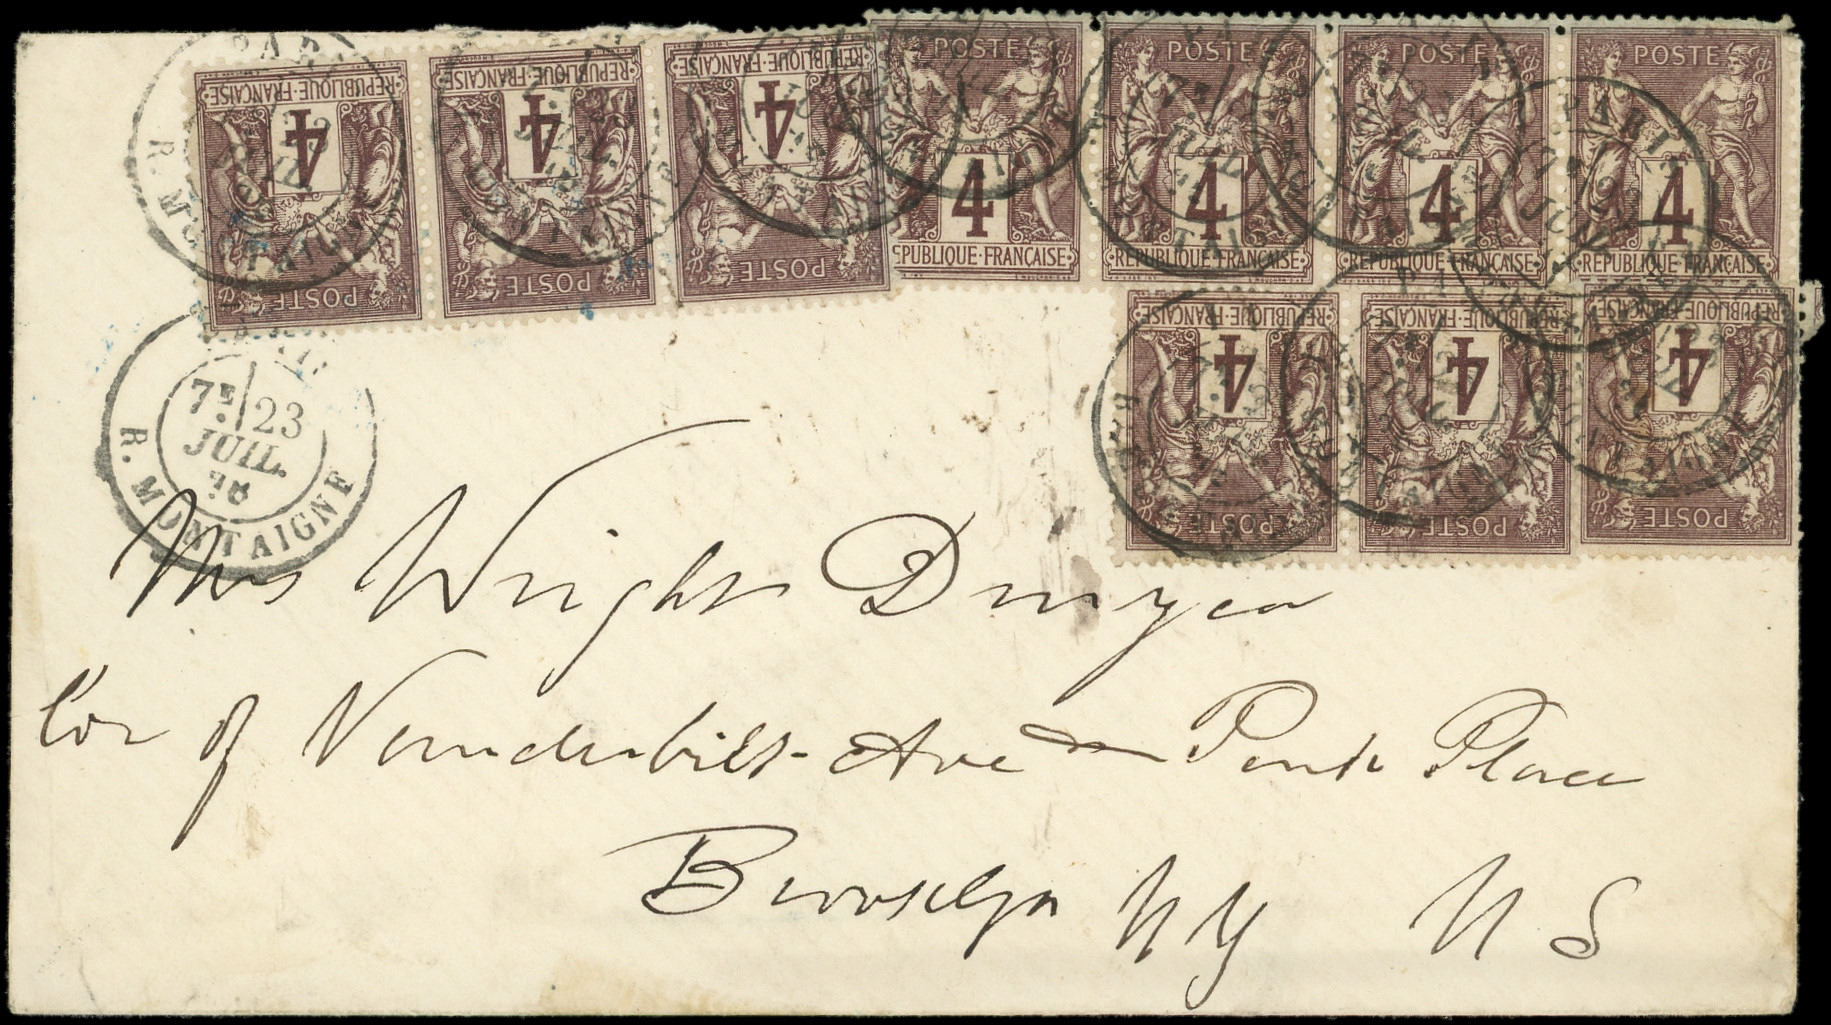 RÉPUBLIQUE FRANÇAISE 4 POSTE
RÉPUBLIQUE FRANÇAISE 4 POSTE
RÉPUBLIQUE FRANÇAISE 4 POSTE
POSTE 4 RÉPUBLIQUE FRANÇAISE
POSTE 4 RÉPUBLIQUE FRANÇAISE
POSTE 4 RÉPUBLIQUE FRANÇAISE
POSTE 4 RÉPUBLIQUE FRANÇAISE
RÉPUBLIQUE FRANÇAISE 4 POSTE
RÉPUBLIQUE FRANÇAISE 4 POSTE
RÉPUBLIQUE FRANÇAISE 4 POSTE
PARIS
7E 23
JUIL.
78
R. MONTAIGNE
Mrs Wright Duryea
Cor of Vanderbilt Ave & Park Place
Brooklyn NY US